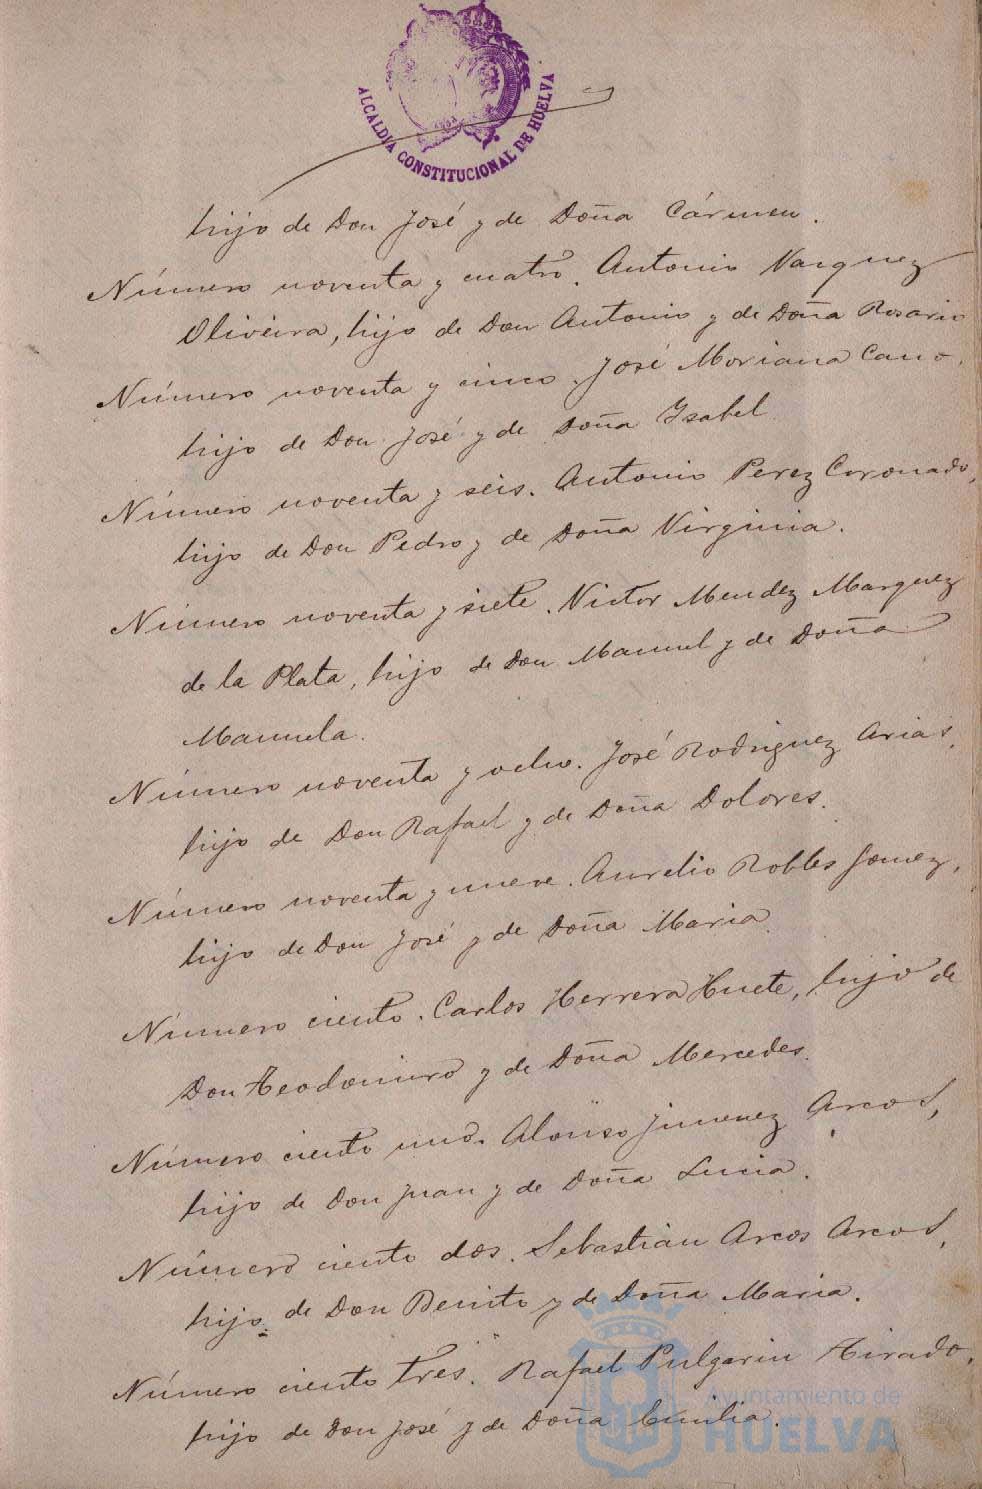 ALCALDIA CONSTITUCIONAL DE HUELVA
hijo de Don José y de Doña Cármen.
Número noventa y cuatro. Antonio Vazquez
Oliveira, hijo de Don Antonio y de Doña Rosario
Número noventa y cinco. José Moriana Cano,
hijo de Don José y de Doña Isabel
Número noventa y seis. Antonio Perez Coronado,
hijo de Don Pedro y de Doña Virginia.
Número noventa y siete. Victor Mendez Marquez
de la Plata, hijo de Don Manuel y de Doña
Manuela.
Número noventa y ocho. José Rodriguez Arias,
hijo de Don Rafael y de Doña Dolores.
Número noventa y nueve. Aurelio Robles Gomez,
hijo de Don José y de Doña Maria.
Número ciento. Carlos Herrera Huete, hijo de
Don Teodomiro y de Doña Mercedes.
Número ciento uno. Alonso Jimenez Arcos,
hijo de Don Juan y de Doña Lucia.
Número ciento dos. Sebastian Arcos Arcos,
hijo de Don Benito y de Doña Maria.
Número ciento tres. Rafael Pulgarin Tirado,
hijo de Don José y de Doña Emilia.
Ayuntamiento de
HUELVA